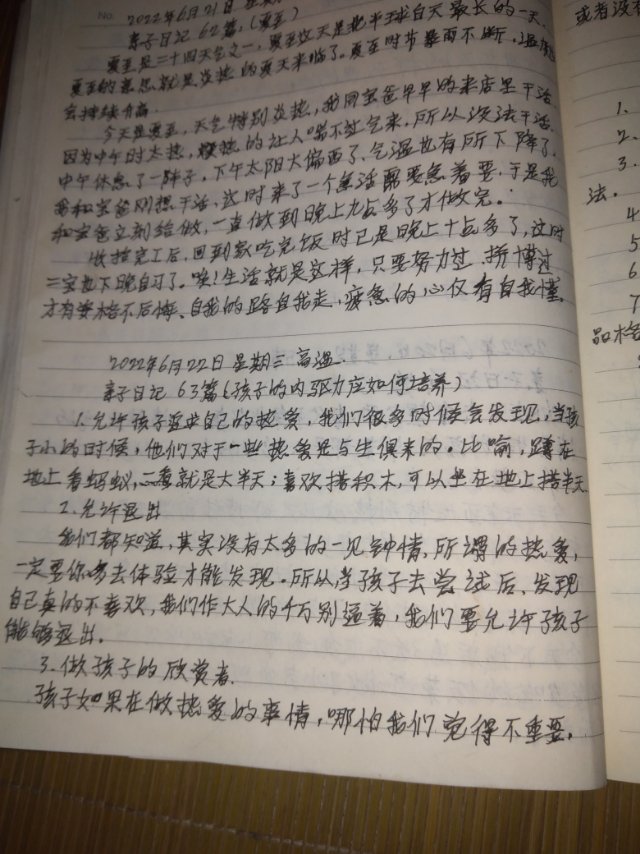 No.
2022年6月21日 星期
亲子日记62篇,(夏至)
夏至是二十四气之一,夏至这天是北半球白天最长的一天。
夏至的意思就是炎热的夏天来临了。夏至时节暴雨不断,温度
会持续升高。
今天是夏至,天气特别炎热,我同宝爸早早的来店里干活,
因为中午时太热,燥热的让人喘不过气来,所以没法干活。
中午休息了一阵子,下午太阳大偏西了,气温也有所下降了,
我和宝爸刚想干活,这时来了一个急活需要急着要,于是我
和宝爸立刻给做,一直做到晚上九点多了才做完。
收拾完工后,回到家吃完饭时已是晚上十点多了,这时
二宝也下晚自习了。唉!生活就是这样,只要努力过,拼搏过
才有资格不后悔、自我的路自我走,疲惫的心仅有自我懂。
2022年6月22日 星期三 高温.
亲子日记 63篇(孩子的内驱力应如何培养)
1.允许孩子自己的热爱,我们很多时候会发现,当孩
子小的时候,他们对于一些热爱是与生俱来的。比喻,蹲在
地上看蚂蚁,一看就是大半天;喜欢搭积木,可以坐在地上搭半天
2.允许退出
我们都知道,其实没有太多的一见钟情,所谓的热爱,
一定要你多去体验才能发现。所以当孩子去尝试后,发现
自己真的不喜欢,我们作大人的千万别逼着,我们要允许孩子
能够退出。
3.做孩子的欣赏者.
孩子如果在做热爱的事情,哪怕我们觉得不重要,
或者没有
1.
2.
3.
法.
4
5
6
7
品格